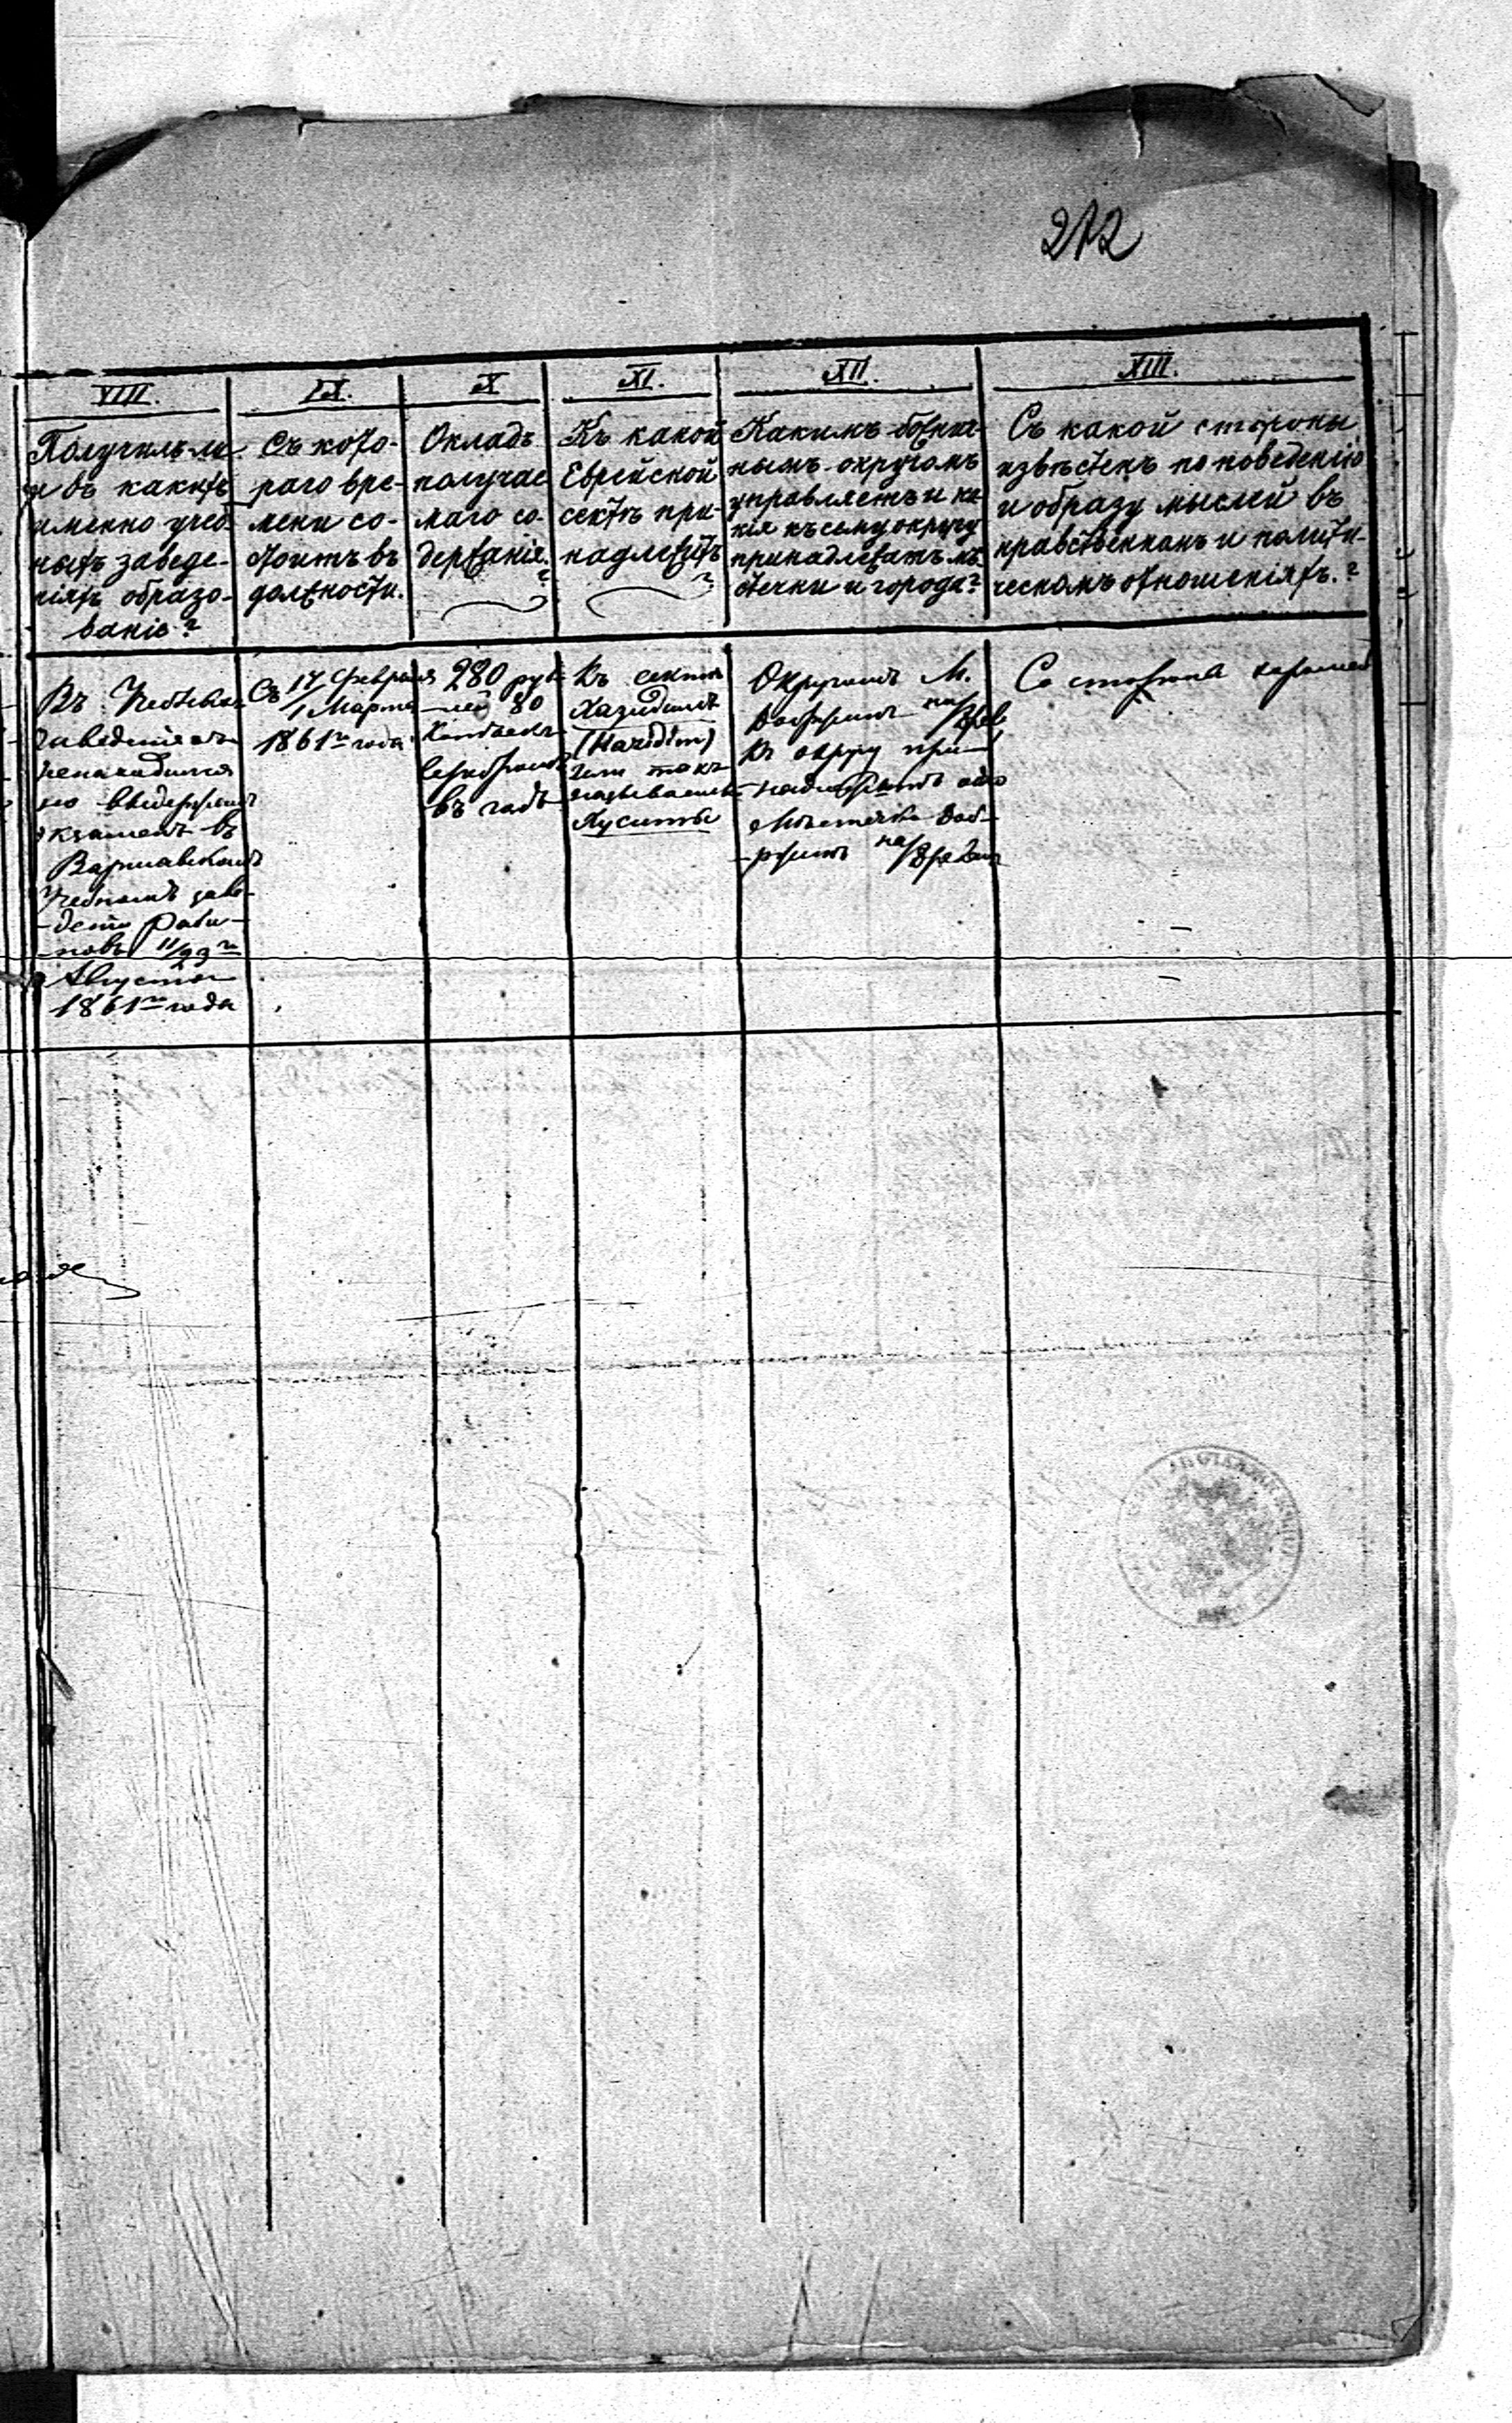 212
VIII.
Получилъ ли
и въ какихъ
именно учеб-
ныхъ заведе-
ніяхъ образо-
ваніе?
IX.
Съ кото-
раго вре-
мени со-
стоитъ въ
должности.
X
Окладъ
получае
маго со-
держанія.
?
XI.
Къ какой
Еврейской
сектѣ при-
надлежитъ
?
XII.
Какимъ божнич-
нымъ округомъ
управляетъ и ка-
кія къ сему округу
принадлежатъ мѣ-
стечки и города?
XIII.
Съ какой стороны
извѣстенъ по поведенію
и образу мыслей въ
нравственномъ и полити-
ческомъ отношеніяхъ.?
Въ Учебномъ
заведеніи
ненаходился
но выдержалъ
экзаменъ въ
Варшавскомъ
Учебномъ заве-
деніи Раби-
новъ 11/23го
Августа
1861го года
Съ 17 Февраля
/1 Марта
1861го года
280 руб-
лей 80
Копѣекъ
серебромъ
въ годъ
Къ сектѣ
Хазидимъ
(Hazidim)
или такъ
называемые
Гуситы
Округомъ М.
Добржинъ на/Древ
Къ округу при-
надлежитъ одно
Мѣстечко Доб-
ржинъ на/Древенц
Со стороны хорошей